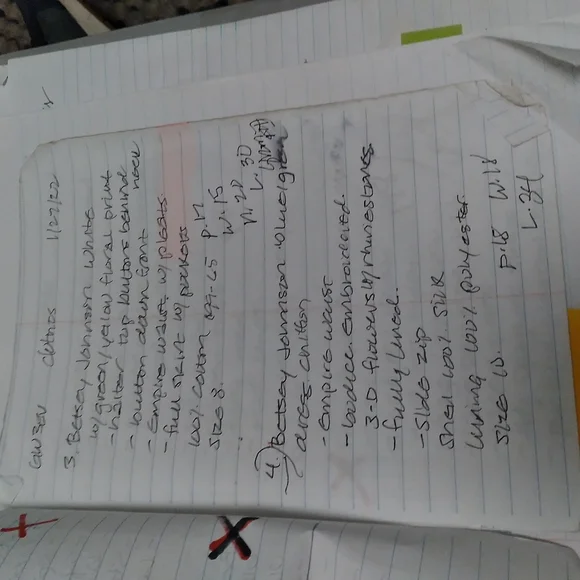 clothes 1/22/22
3. Betsey Johnson white
w/green/yellow floral print
- halter top buttons behind
neck
- button down front
- empire waist w/ pleats
- full skirt w/ pockets
100% cotton P.17
size 8. W.15
30
L.
4. Betsey Johnson blue/green
dress chiffon
- empire waist
- bodice embroidered.
3-D flowers w/rhinestones
- fully lined.
- side zip
Shell 100% silk
Lining 100% polyester
Size 10. P.18 W.18
L.34
X
X